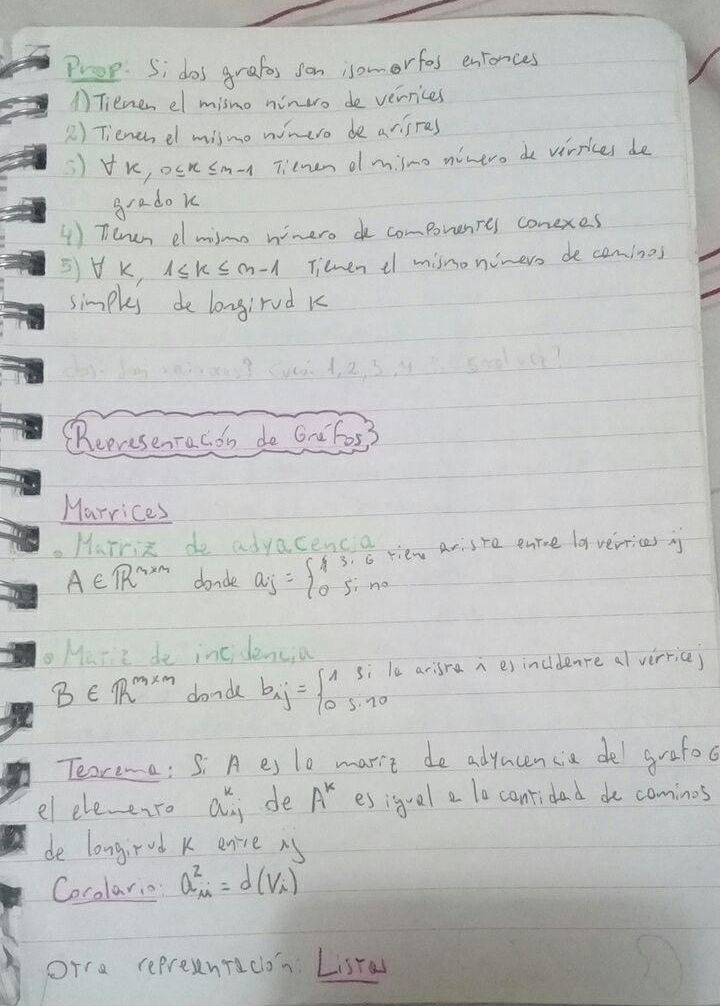 Prop: Si dos grafos son isomorfos entonces
1) Tienen el mismo número de vértices
2) Tienen el mismo número de aristas
3) ∀ K, 0≤K≤n-1 Tienen el mismo número de vértices de
grado K
4) Tienen el mismo número de componentes conexas
5) ∀ K, 1≤K≤n-1 Tienen el mismo número de caminos
simples de longitud K
1, 2, 3, 4
Representación de Gráfos
Matrices
• Matriz de adyacencia
A ∈ ℝⁿˣⁿ donde aij = {1 si G tiene arista entre los vértices ij
0 si no
• Matiz de incidencia
B ∈ ℝᵐˣⁿ donde bij = {1 si la arista i es incidente al vértice j
0 sino
Teorema: Si A es la matriz de adyacencia del grafo G
el elemento aᵏij de Aᵏ es igual a la cantidad de caminos
de longitud K entre ij
Corolario: a²ii = d(Vi)
Otra representación: Listas